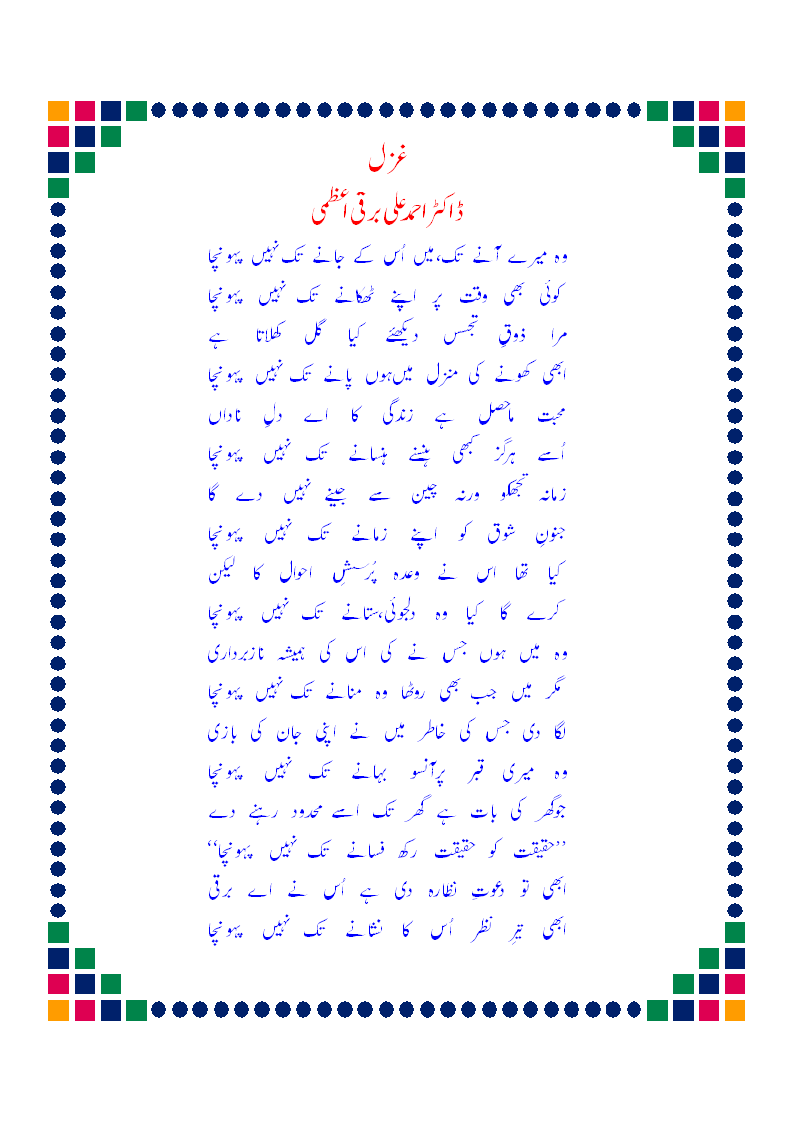 غزل
ڈاکٹر احمد علی برقی اعظمی
وہ میرے آنے تک،میں اُس کے جانے تک نہیں پہونچا
کوئی بھی وقت پر اپنے ٹھکانے تک نہیں پہونچا
مرا ذوقِ تجسس دیکھئے کیا گل کھلاتا ہے
ابھی کھونے کی منزل میں ہوں پانے تک نہیں پہونچا
محبت ماحصل ہے زندگی کا اے دلِ ناداں
اُسے ہرگز کبھی ہننے ہنسانے تک نہیں پہونچا
زمانہ تجھکو ورنہ چین سے جینے نہیں دے گا
جنونِ شوق کو اپنے زمانے تک نہیں پہونچا
کیا تھا اس نے وعدہ پُرسشِ احوال کا لیکن
کرے گا کیا وہ دلجوئی،ستانے تک نہیں پہونچا
وہ میں ہوں جس نے کی اس کی ہمیشہ نازبرداری
مگر میں جب بھی روٹھا وہ منانے تک نہیں پہونچا
لگا دی جس کی خاطر میں نے اپنی جان کی بازی
وہ میری قبر پرآنسو بہانے تک نہیں پہونچا
جوگھر کی بات ہے گھر تک اسے محدود رہنے دے
’’حقیقت کو حقیقت رکھ فسانے تک نہیں پہونچا‘‘
ابھی تو دعوتِ نظارہ دی ہے اُس نے اے برقی
ابھی تیرِ نظر اُس کا نشانے تک نہیں پہونچا